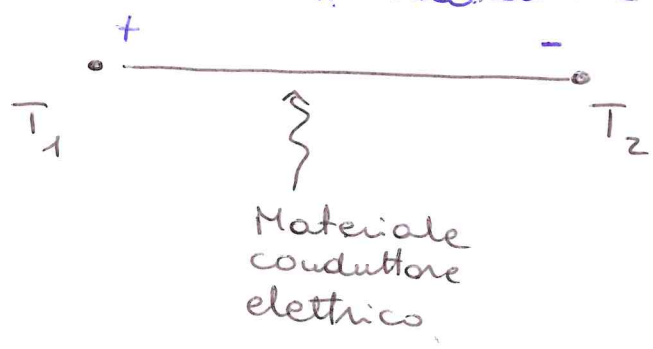 + -
T1 T2
Materiale
conduttore
elettrico